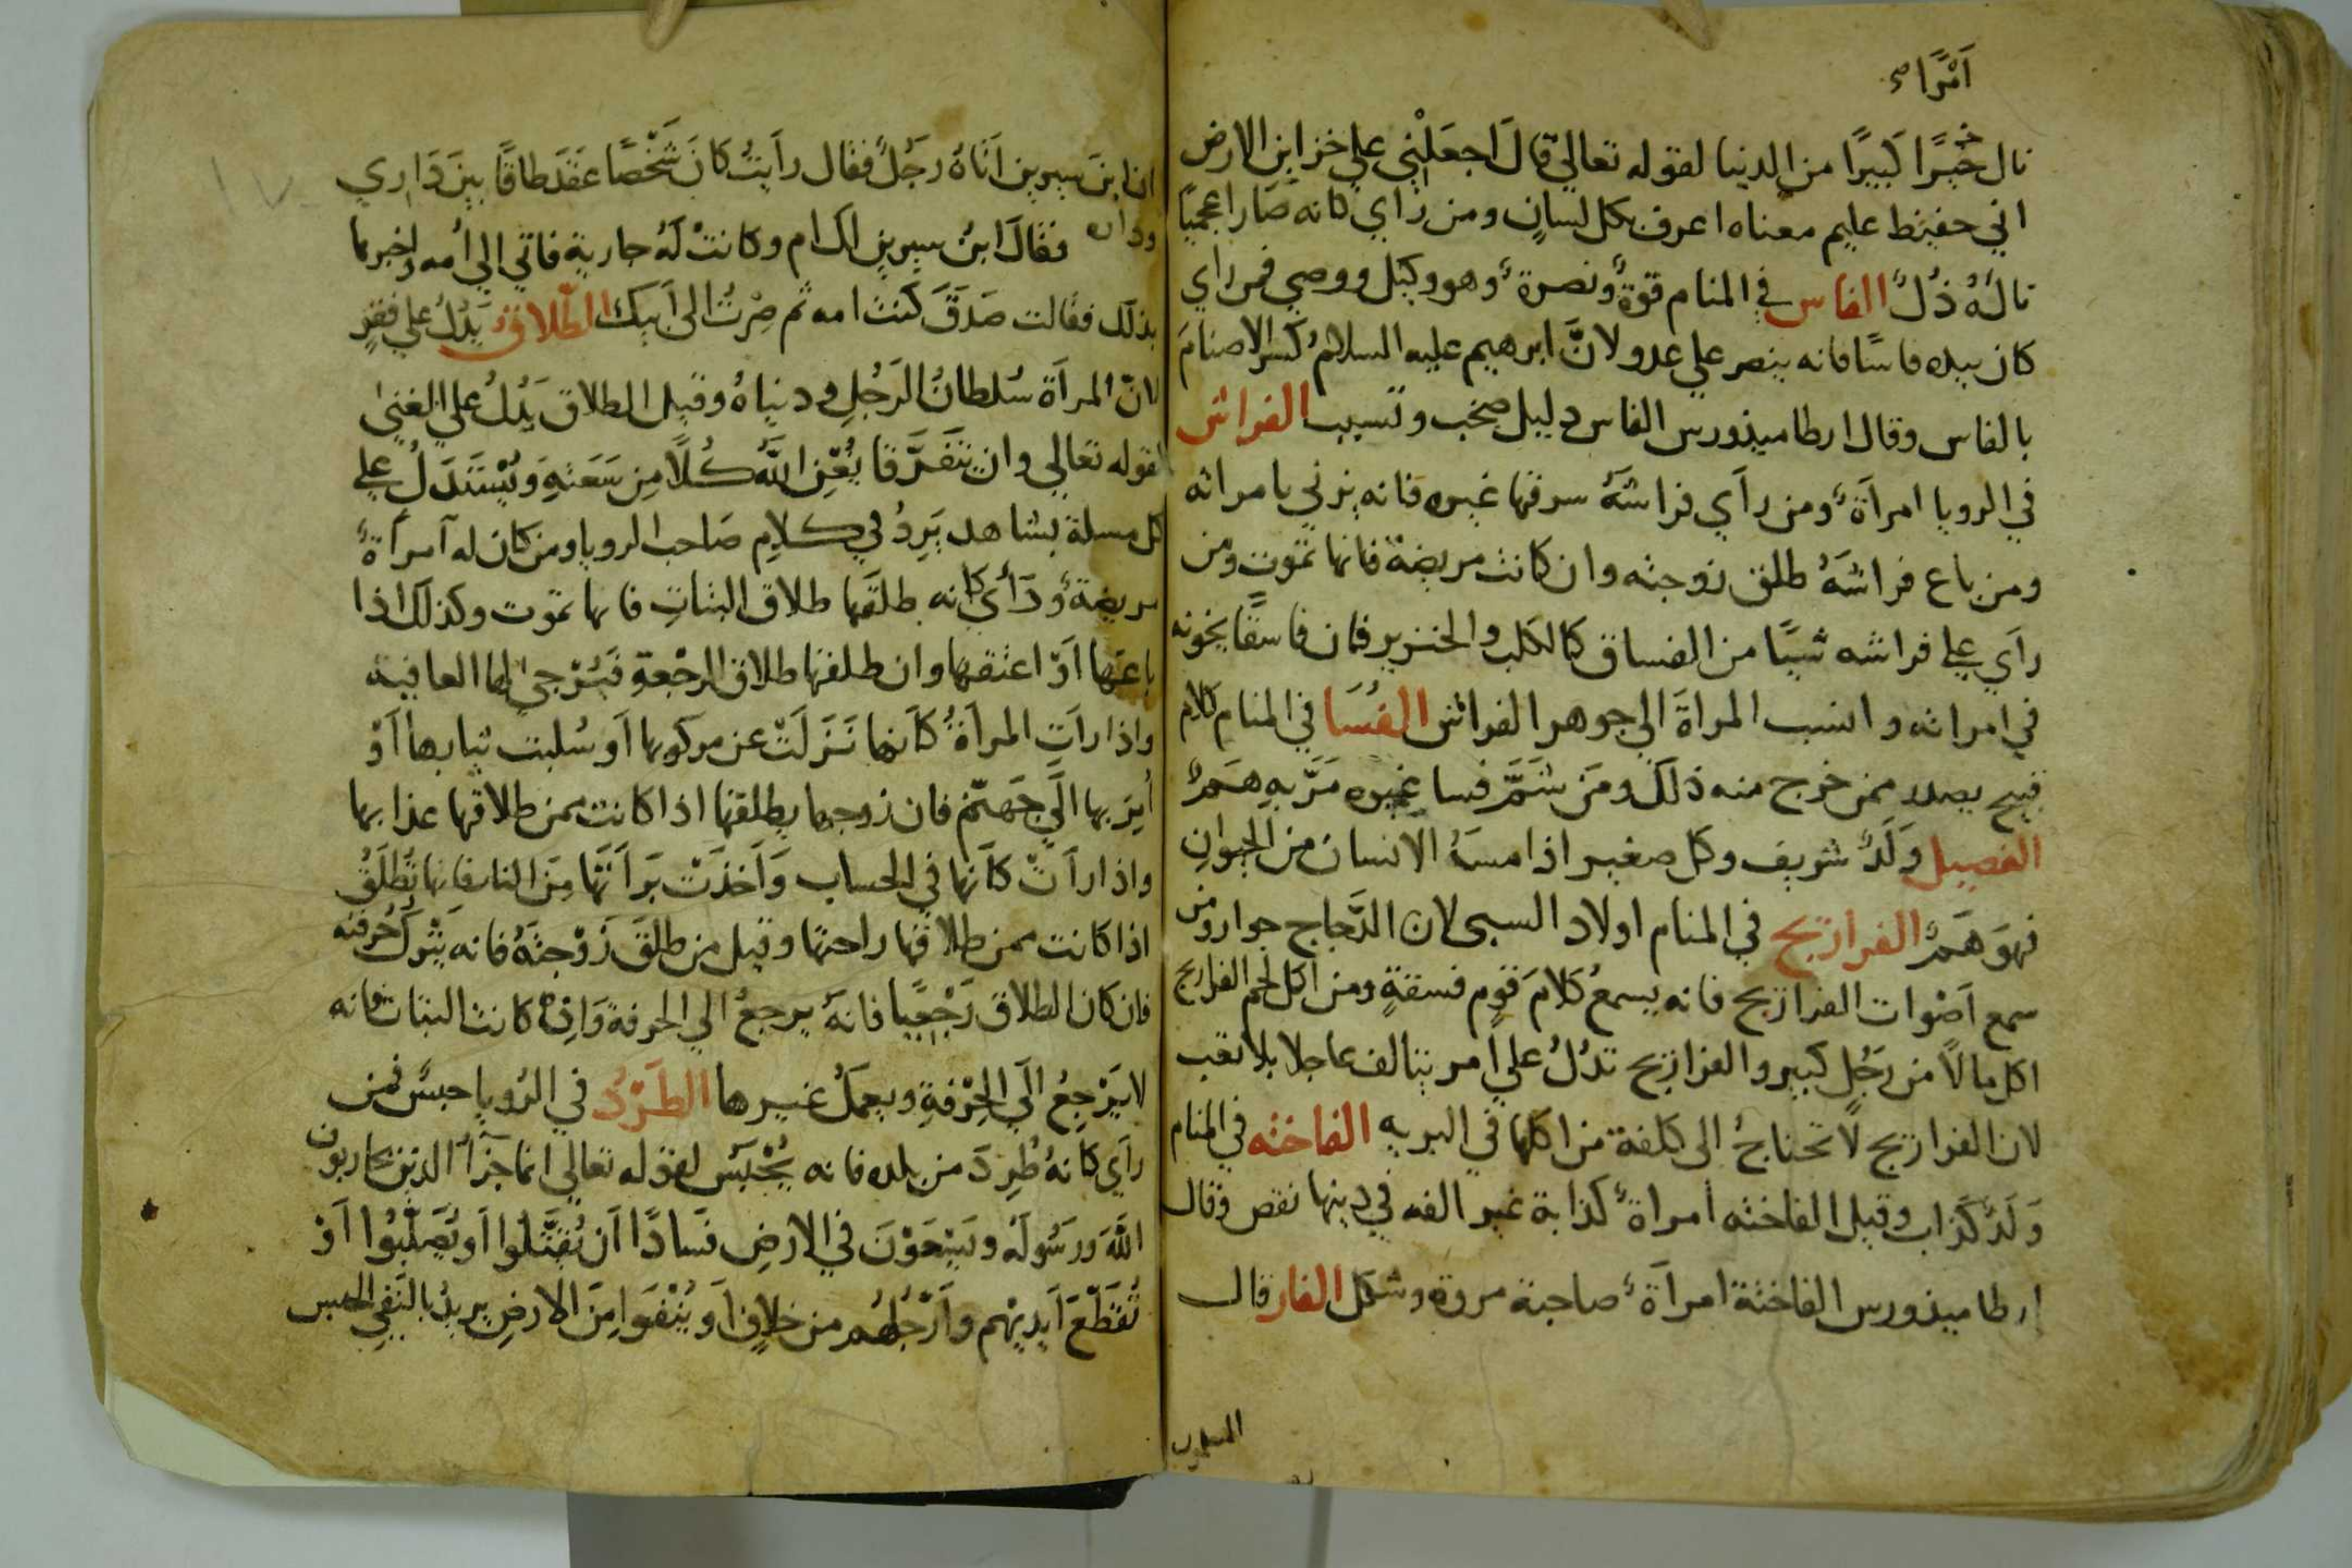 أمرًا صح
نال خيرًا كبيرًا من الدنيا لقوله تعالي قال اجعلني علي خزاين الارض
اني حفيظ عليم معناه اعرف بكل لسان ومن رأي كانه صار اعجميًا
ناله ذلٌ الفاس في المنام قوةٌ ونصرةٌ وهو وكيل ووصي فمن راي
كان بيده فاسًا فانه ينصر علي عدو لانّ ابرهيم عليه السلام كسر الاصنام
بالفاس وقال ارطاميذورس الفاس دليل صخب وتسبب الفراش
في الرويا امرأةٌ ومن رأي فراشه سرقها غيره فانه يزني بامراته
ومن باع فراشه طلق زوجته وان كانت مريضة فانها تموت ومن
رأي علي فراشه شيئًا من الفساق كالكلب والخنزير فان فاسقًا يخونه
في امراته وانسب المراة الي جوهر الفراش الفُسَا في المنام كلام
قبيح يصدر ممن خرج منه ذلك ومن شمّ فسا غيره مرّ به همٌ
الفصيل ولدٌ شريف وكل صغير اذا مسه الانسان من الحيوان
فهو همٌ الفراريج في المنام اولاد السبي لان الدّجاج جوار ومن
سمع اصوات الفراريج فانه يسمع كلام قوم فسقةٍ ومن اكل لحم الفراريج
اكل مالاً من رجل كبير والفراريج تدلُ علي امر يتالف عاجلا بلا تعب
لان الفراريج لا تحتاج الى كلفة من اكلها في البريه الفاخته في المنام
ولدٌ كذاب وقيل الفاخته امراةٌ كذابة غير الفه في دينها نقص وقال
ارطاميذورس الفاختة امرأةٌ صاحبة مروة وشكل الفار قال
ان ابن سيرين اتاه رجلٌ فقال رأيت كان شخصًا عقد طاقًا بين داري
وداره فقال ابن سيرين الك ام وكانت له جارية فاتي الي امه واخبرها
بذلك فقالت صدق كنت امه ثم صرت الى ابيك الطلاق يدل علي فقرٍ
لانّ المرأة سلطان الرجل ودنياه وقيل الطلاق يدل علي الغنى
لقوله تعالي وان يتفرّقا يغن الله كلاً من سعته ويُستدل علي
كل مسلة بشاهد يرد في كلام صاحب الرويا ومن كان له امرأةٌ
مريضةٌ ورأي كانه طلقها طلاق البتات فانها تموت وكذلك اذا
باعها أوْ اعتقها وان طلقها طلاق الرجْعةِ فيُرْجى لها العافية
واذا رأت المرأة كأنها نزلتْ عن مركوبها أو سُلبت ثيابها أوْ
أُمِرَ بها الَي جهنّم فان زوجها يطلقها اذا كانت ممن طلاقها عذابها
واذا رأتْ كأنها في الحساب وأخذتْ برأتها من النار فانها تُطلّقُ
اذا كانت ممن طلاقها راحتها وقيل من طلق زوْجته فانه يترك حُرفته
فان كان الطلاق رجْعيا فانه يرجعُ الي الحرفة وان كانت البتات فانه
لا يَرْجِعُ الَي الحِرْفةِ ويعملُ غيرها الطَرْدُ في الرُويا حبسٌ فمن
رأي كانهُ طُرِدَ من بلده فانه يُحْبَس لقوله تعالي انما جزآ الذين يحاربون
اللّهَ ورسُولَهُ ويسْعَوْنَ في الارضِ فسادًا أن يُقتّلوا أو يُصلّبُوا أوْ
تُقطّعَ أيديهم وأرْجُلُهم من خلافٍ أو يُنْفَوا مِنَ الارضِ يريدُ بالنّفي الحبس